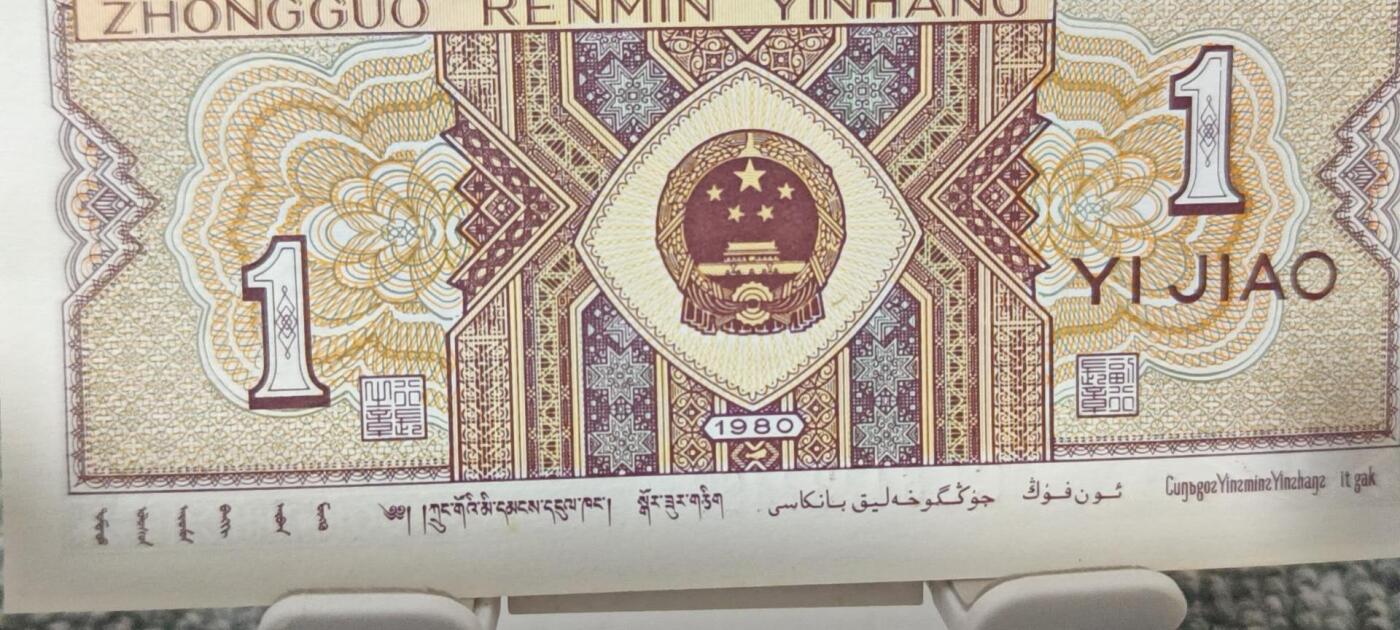 ZHONGGUO RENMIN YINHANG
1
YI JIAO
1
行长之章
副行长章
1980
༄༅། །ཀྲུང་གོའི་མི་དམངས་དངུལ་ཁང་། སྒོར་ཟུར་གཅིག جۇڭگوخەلىق بانكاسى ئون فۇڭ Cuŋƅgoƨ Yinƨminƨ Yinƨhaŋƨ It gak